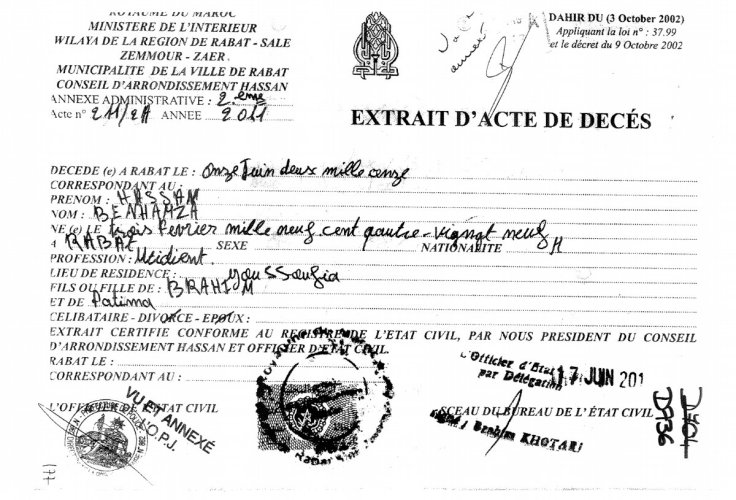 ROYAUME DU MAROC
MINISTERE DE L'INTERIEUR
WILAYA DE LA REGION DE RABAT - SALE
ZEMMOUR - ZAER
MUNICIPALITE DE LA VILLE DE RABAT
CONSEIL D'ARRONDISSEMENT HASSAN
ANNEXE ADMINISTRATIVE : 2ème
Acte n° 211/2A ANNEE 2011
DAHIR DU (3 October 2002)
Appliquant la loi n° : 37.99
et le décret du 9 Octobre 2002
EXTRAIT D'ACTE DE DECÉS
DECEDE (e) A RABAT LE : onze Juin deux mille onze
CORRESPONDANT AU :
PRENOM : HASSAN
NOM : BENHAMZA
NE (e) LE trois fevrier mille neuf cent quatre-vignat neuf
A RABAT SEXE NATIONALITE H
PROFESSION :
LIEU DE RESIDENCE : youssoufia
FILS OU FILLE DE : BRAHIM
ET DE Fatima
CELIBATAIRE - DIVORCE - EPOUX :
EXTRAIT CERTIFIE CONFORME AU REGISTRE DE L'ETAT CIVIL, PAR NOUS PRESIDENT DU CONSEIL
D'ARRONDISSEMENT HASSAN ET OFFICIER D'ETAT CIVIL.
RABAT LE :
CORRESPONDANT AU :
L'Officier d'Etat
par Délégation
17 JUIN 201
VU ET ANNEXÉ
L'O.P.J.
L'OFFICIER DE L'ETAT CIVIL
SCEAU DU BUREAU DE L'ÉTAT CIVIL
Signé : Brahim KHOTARI
D701
D936